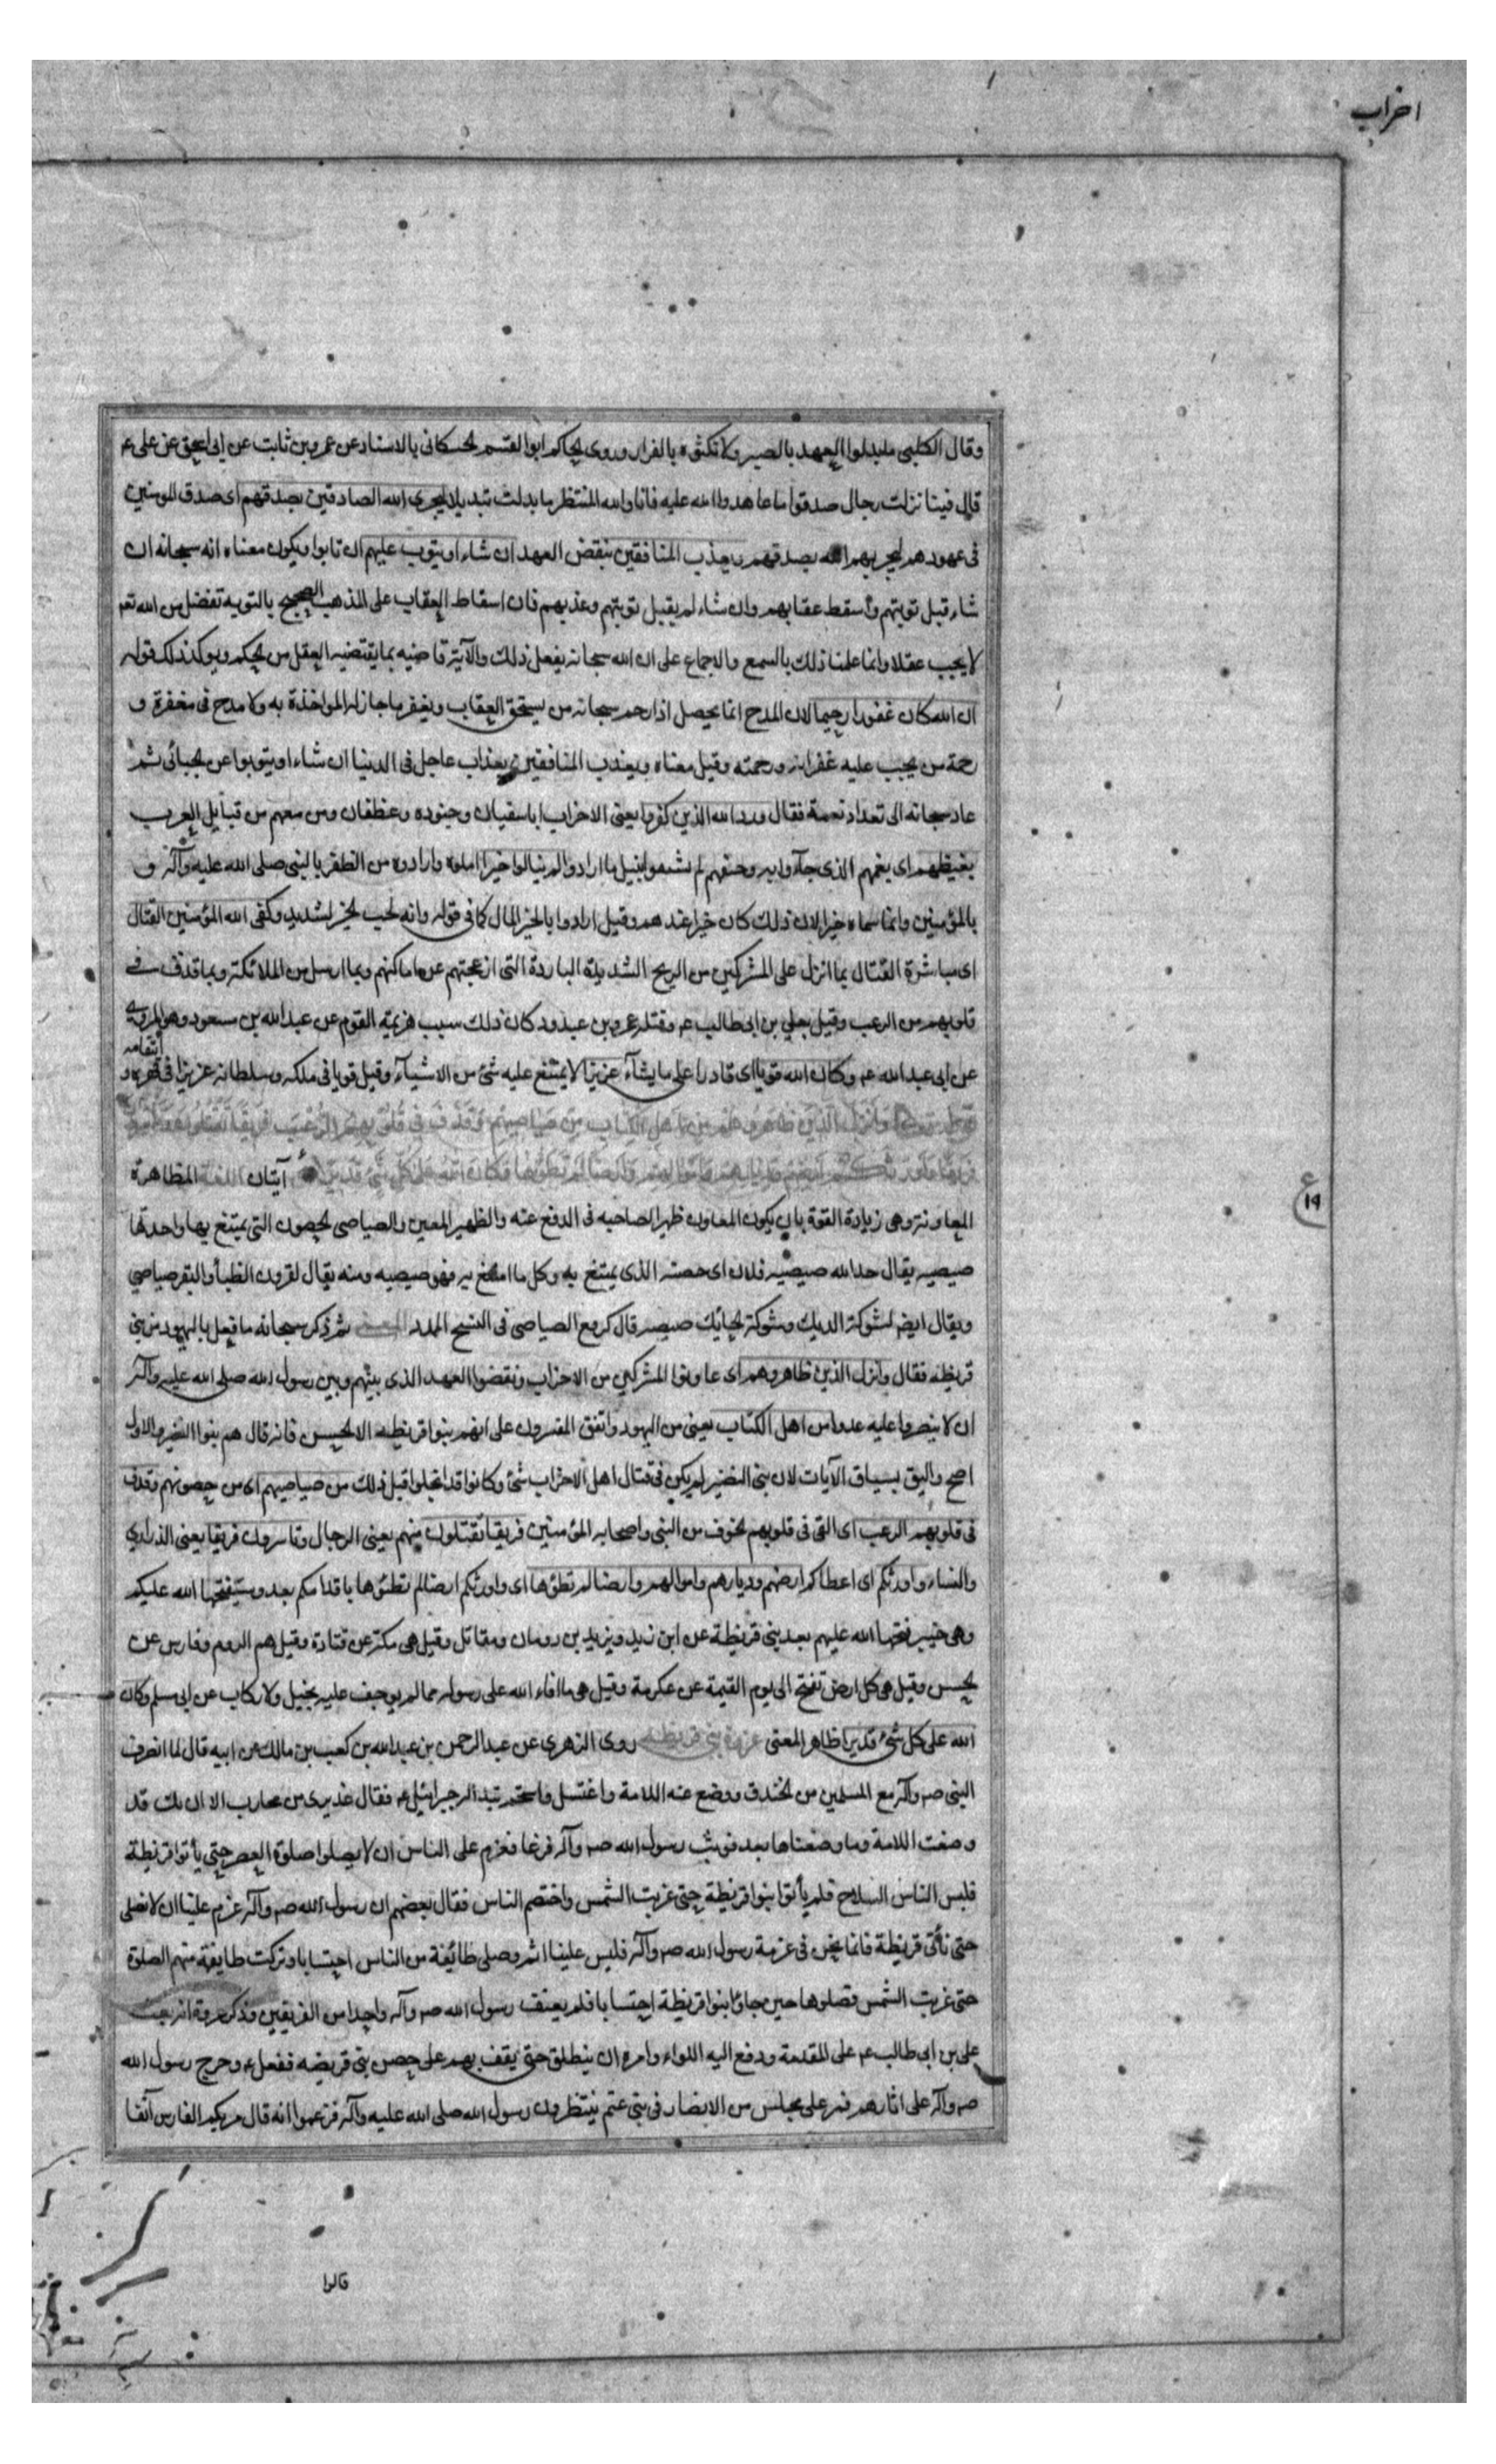 احزاب
وقال الكلبى مابدلوا العهد بالصبر ولا نكثوه بالفرار وروى الحاكم ابوالقسم الحسكانى بالاسناد عن عمرو بن ثابت عن ابى اسحق عن على ع
قال فينا نزلت رجال صدقوا ما عاهدوا الله عليه فانا والله المنتظر ما بدلت تبديلا ليجزى الله الصادقين بصدقهم اى صدق المومنين
فى عهودهم ليجزيهم الله بصدقهم يعذب المنافقين بنقض العهد ان شاء او يتوب عليهم ان تابوا ويكون معناه انه سبحانه ان
شاء قبل توبتهم وأسقط عقابهم وان شاء لم يقبل توبتهم وعذبهم فان اسقاط العقاب على المذهب الصحيح بالتوبه تفضل من الله تعم
لا يجب عقلا وانما علمنا ذلك بالسمع والاجماع على ان الله سبحانه يفعل ذلك والآية قاضيه بما يقتضيه العقل من الحكم ويوكد ذلك قوله
ان الله كان غفورا رحيما لان المدح انما يحصل اذا رحم سبحانه من يستحق العقاب ويغفر ما جاز له المواخذة به ولا مدح فى مغفرة و
رحمة من يجب عليه غفرانه ورحمته وقيل معناه ويعذب المنافقين بعذاب عاجل فى الدنيا ان شاء او يتوبوا عن الجبائى ثم
عاد سبحانه الى تعداد نعمة فقال ورد الله الذين كفروا يعنى الاحزاب اباسفيان وجنوده وغطفان ومن معهم من قبايل العرب
بغيظهم اى بغمهم الذى جآءوا به وحنقهم لم يشفوا بنيل ما ارادوا لم ينالوا خيرا املوه وارادوه من الظفر بالنبى صلى الله عليه وآله و
بالمؤمنين وانما سماه خيرا لان ذلك كان خيرا عندهم وقيل ارادوا بالخير المال كما فى قوله وانه لحب الخير لشديد وكفى الله المؤمنين القتال
اى مباشرة القتال بما انزل على المشركين من الريح الشديدة الباردة التى ازعجتهم عن اماكنهم وبما ارسل من الملائكة وبما قذف فى
قلوبهم من الرعب وقيل بعلي بن ابى طالب ع وقتله عمرو بن عبدود كان ذلك سبب هزيمة القوم عن عبدالله بن مسعود وهو المروى
عن ابى عبدالله ع وكان الله قويا اى قادرا على ما يشآء عزيزا لا يمتنع عليه شئ من الاشيآء وقيل قويا فى ملكه وسلطانه عزيزا فى قهره و
انتقامه
وَأَنْزَلَ الَّذِينَ ظَاهَرُوهُمْ مِنْ اَهْلِ الْكِتَابِ مِنْ صَيَاصِيهِمْ وَقَذَفَ فِى قُلُوبِهِمُ الرُّعْبَ فَرِيقًا تَقْتُلُونَ وَتَأْسِرُونَ
فَرِيقًا وَاَوْرَثَكُمْ اَرْضَهُمْ وَدِيَارَهُمْ وَاَمْوَالَهُمْ وَاَرْضًا لَمْ تَطَؤُهَا وَكَانَ اللهُ عَلَى كُلِّ شَىْءٍ قَدِيرًا آيتان اللغة المظاهرة
المعاونة وهى زيادة القوة بان يكون المعاون ظهرا لصاحبه فى الدفع عنه والظهير المعين والصياصى الحصون التى يمتنع بها واحدتها
صيصيه يقال جدالله صيصيه فلان اى حصنه الذى يمتنع به وكل ما امتنع به فهو صيصيه ومنه يقال لقرون الظبآ والبقر صياصي
ويقال ايضا لشوكة الديك وشوكة الحائك صيصه قال كوقع الصياصى فى النسيج الممدد المعنى ثم ذكر سبحانه ما فعل باليهود من بنى
قريظه فقال وانزل الذين ظاهروهم اى عاونوا المشركين من الاحزاب ونقضوا العهد الذى بينهم وبين رسول الله صلى الله عليه وآله
ان لا ينصروا عليه عدوا من اهل الكتاب يعنى من اليهود واتفق المفسرون على انهم بنوا قريظه الا الحسن فانه قال هم بنوا النضير والاول
اصح واليق بسياق الآيات لان بنى النضير لم يكن فى قتال اهل الاحزاب شئ وكانوا قد انجلوا قبل ذلك من صياصيهم اى من حصونهم وقذف
فى قلوبهم الرعب اى القى فى قلوبهم الخوف من النبى واصحابه المؤمنين فريقا تقتلون منهم يعنى الرجال وتاسرون فريقا يعنى الذراري
والنساء واورثكم اى اعطاكم ارضهم وديارهم واموالهم وارضا لم تطؤها اى واورثكم ارضا لم تطئوها باقدامكم بعد وسيفتحها الله عليكم
وهى خيبر فتحها الله عليهم بعد بنى قريظة عن ابن زيد ويزيد بن رومان ومقاتل وقيل هى مكة عن قتادة وقيل هم الروم وفارس عن
الحسن وقيل هى كل ارض تفتح الى يوم القيمة عن عكرمة وقيل هى ما افاء الله على رسوله مما لم يوجف عليه بخيل ولا ركاب عن ابى مسلم وكان
الله على كل شئ قديرا ظاهر المعنى غزوة بنى قريظه روى الزهرى عن عبدالرحمن بن عبدالله بن كعب بن مالك عن ابيه قال لما انصرف
النبى صم وآله مع المسلمين من الخندق ووضع عنه اللامة واغتسل واستحم تبدا له جبرائيل ع فقال عذيرى من محارب الا ان لك قد
وضعت اللامة وما وضعناها بعد فوثب رسول الله صم وآله فزعا فعزم على الناس ان لا يصلوا صلوة العصر حتى يأتوا قريظة
فلبس الناس السلاح فلم يأتوا بنوا قريظة حتى غربت الشمس واختصم الناس فقال بعضهم ان رسول الله صم وآله عزم علينا ان لا نصلى
حتى نأتى قريظة فانما نحن فى عزمة رسول الله صم وآله فليس علينا اثم وصلى طائفة من الناس احتسابا وتركت طايفة منهم الصلوة
حتى غربت الشمس فصلوها حين جاؤا بنوا قريظة احتسابا فلم يعنف رسول الله صم وآله واحدا من الفريقين وذكر عروة انه بعث
على بن ابى طالب ع على المقدمة ودفع اليه اللواء وامره ان ينطلق حتى يقف بهم على حصن بنى قريضه ففعل ع وخرج رسول الله
صم وآله على اثارهم فمر على مجلس من الانصار فى بنى غنم ينتظرون رسول الله صلى الله عليه وآله فزعموا انه قال مر بكم الفارس آنفا
ع
١٩
قالوا